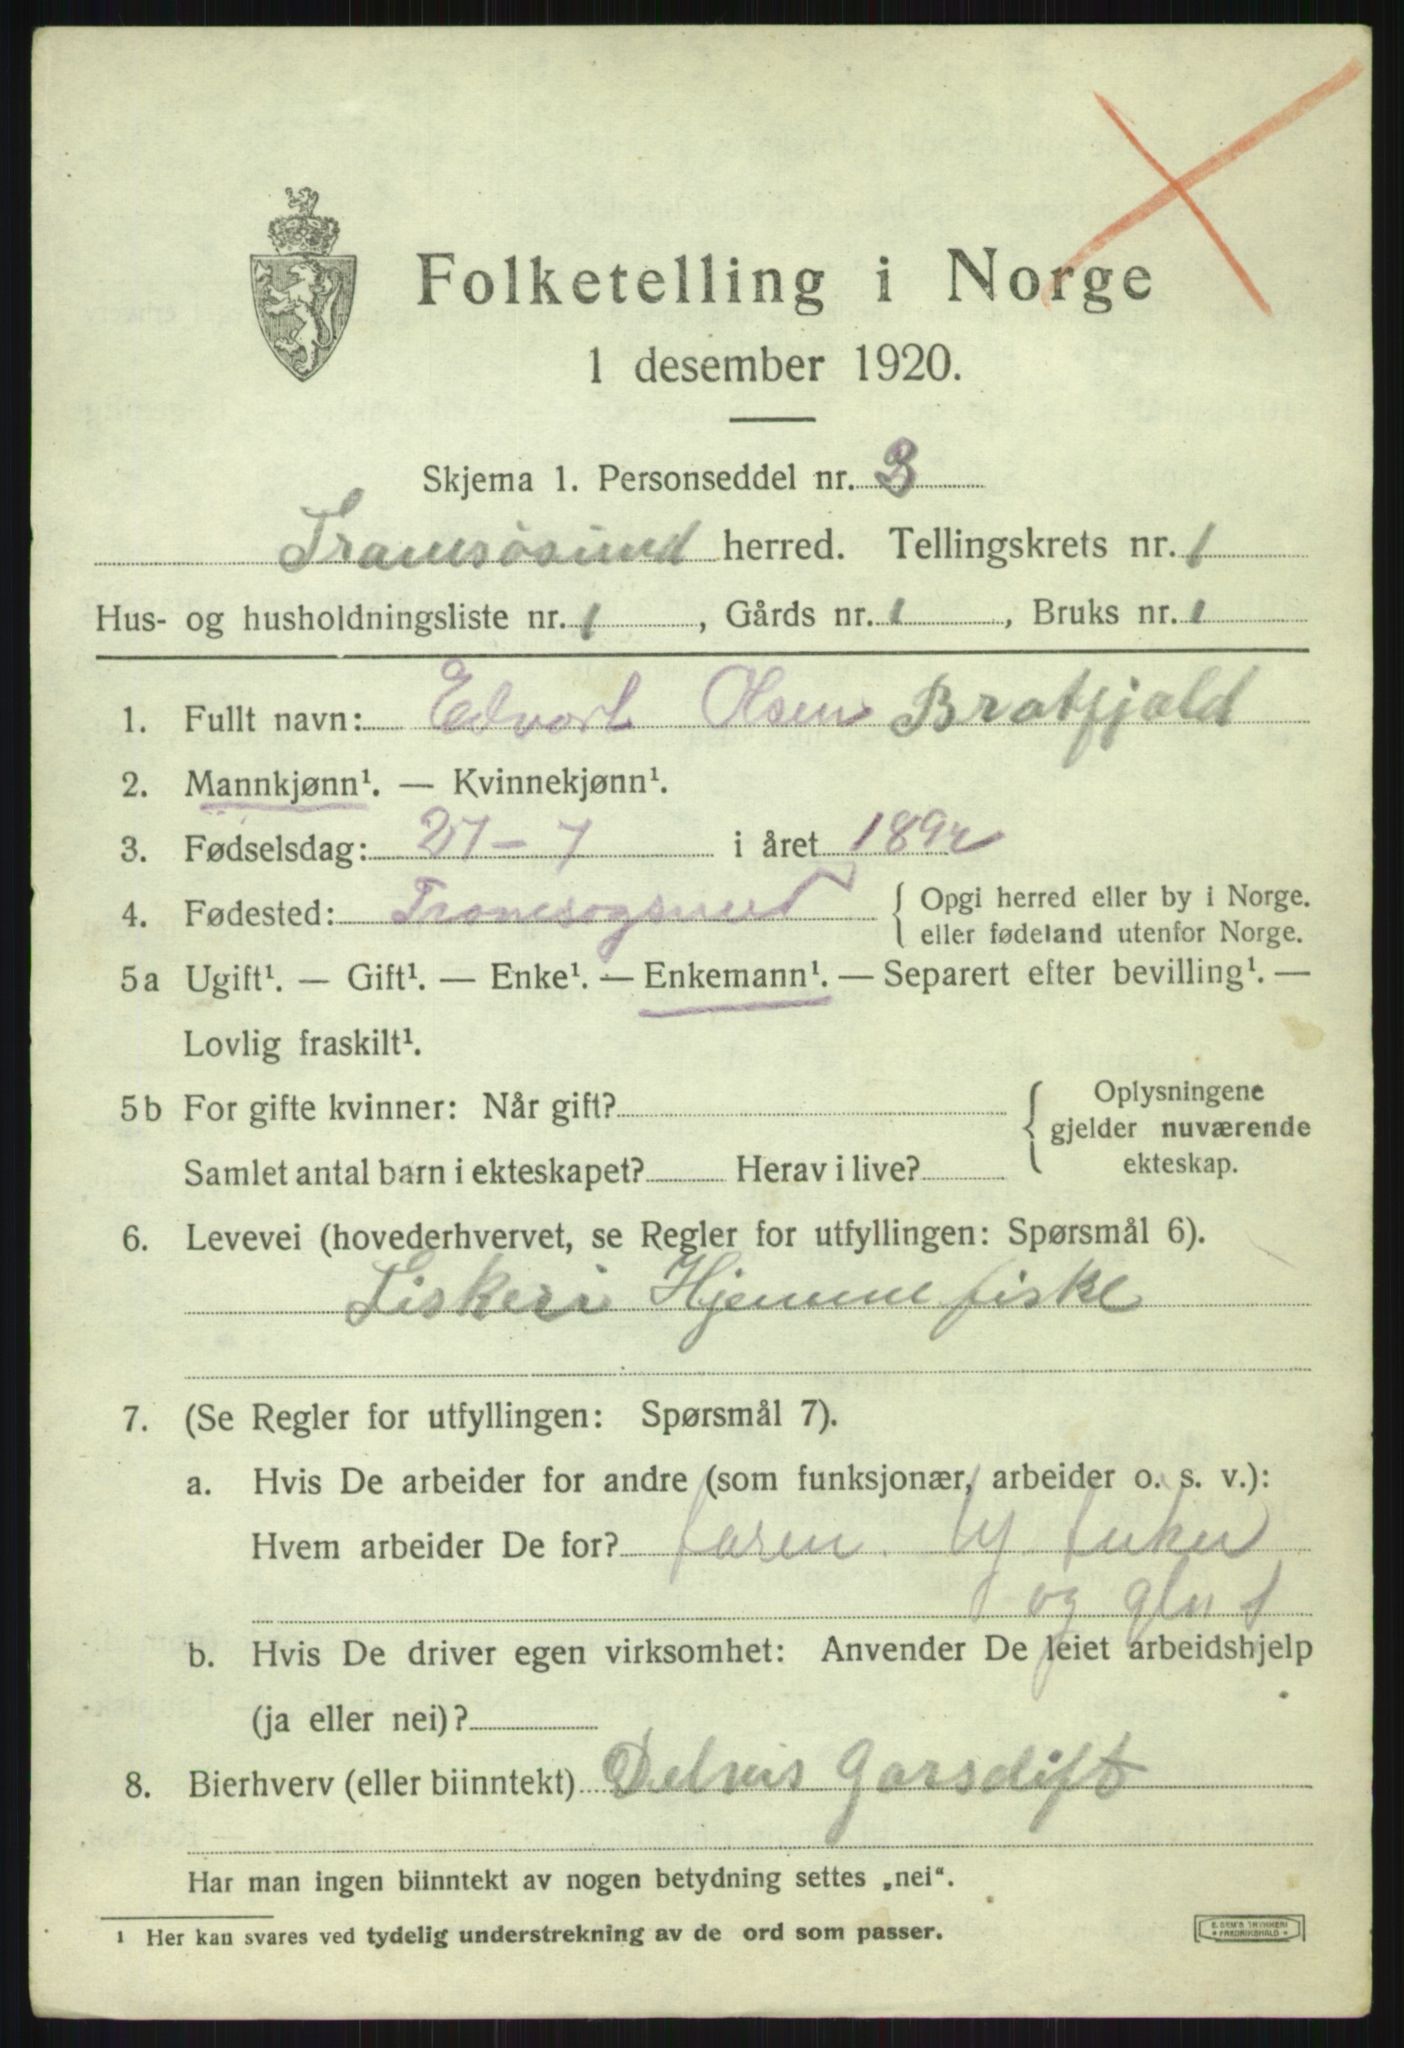 Folketelling i Norge
1 desember 1920.
Skjema 1. Personseddel nr. 3
Tromsøsund herred. Tellingskrets nr. 1
Hus- og husholdningsliste nr. 1, Gårds nr. 1, Bruks nr. 1
1. Fullt navn: Edvart Olsen Bratfjeld
2. Mannkjønn¹. — Kvinnekjønn¹.
3. Fødselsdag: 27-7 i året 1892
4. Fødested: { Opgi herred eller by i Norge.
eller fødeland utenfor Norge.
5a Ugift¹. — Gift¹. — Enke¹. — Enkemann¹. — Separert efter bevilling¹. —
Lovlig fraskilt¹.
5b For gifte kvinner: Når gift? { Oplysningene
gjelder nuværende
Samlet antal barn i ekteskapet? Herav i live? ekteskap.
6. Levevei (hovederhvervet, se Regler for utfyllingen: Spørsmål 6).
Fiskeri Hjemme fiske
7. (Se Regler for utfyllingen: Spørsmål 7).
a. Hvis De arbeider for andre (som funksjonær, arbeider o. s. v.):
Hvem arbeider De for? faren.
og
b. Hvis De driver egen virksomhet: Anvender De leiet arbeidshjelp
(ja eller nei)?
8. Bierhverv (eller biinntekt) Delvis Garsdift
Har man ingen biinntekt av nogen betydning settes „nei“.
¹ Her kan svares ved tydelig understrekning av de ord som passer.